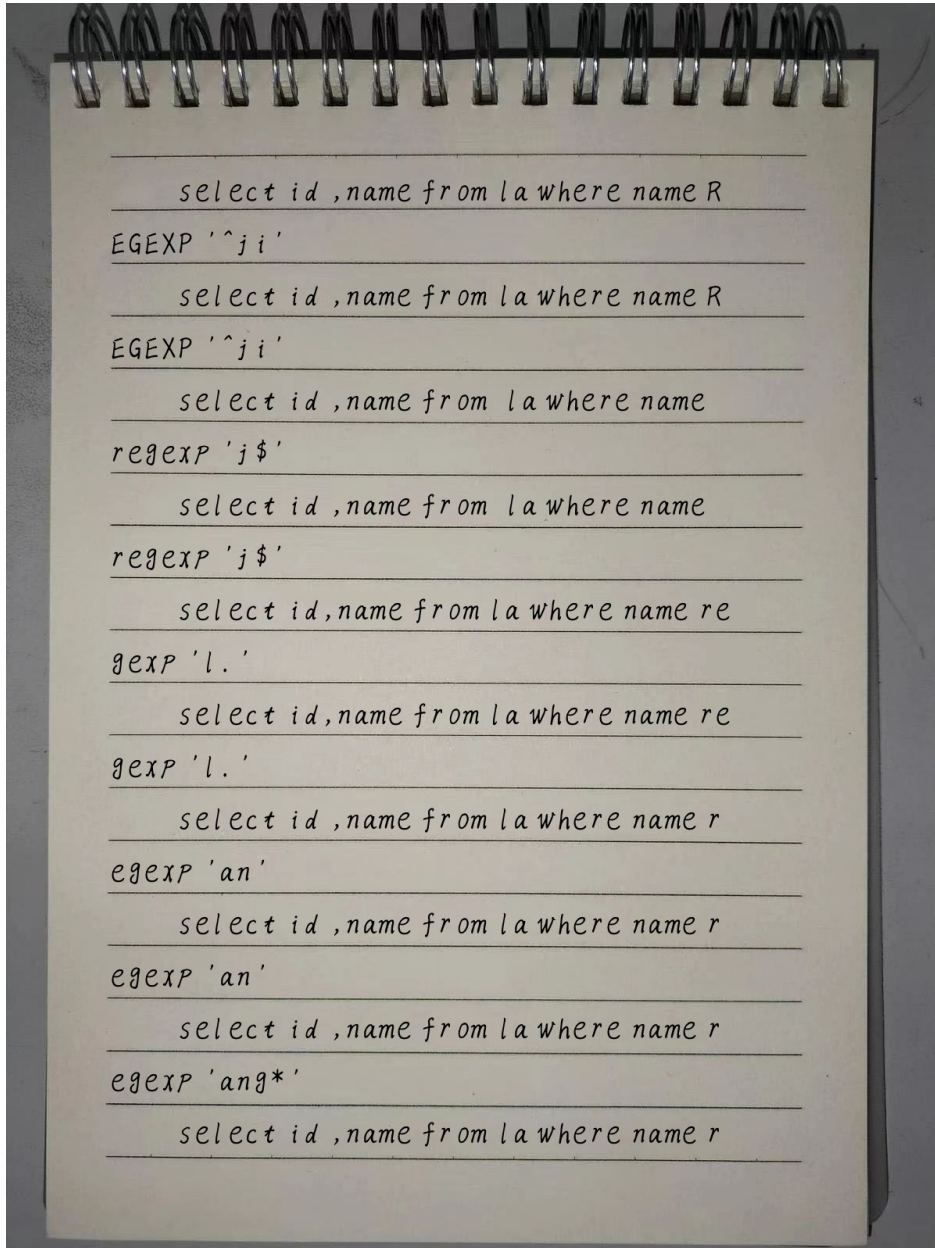 select id ,name from la where name R
EGEXP '^ji'
select id ,name from la where name R
EGEXP '^ji'
select id ,name from la where name
regexp 'j$'
select id ,name from la where name
regexp 'j$'
select id,name from la where name re
gexp 'l.'
select id,name from la where name re
gexp 'l.'
select id ,name from la where name r
egexp 'an'
select id ,name from la where name r
egexp 'an'
select id ,name from la where name r
egexp 'ang*'
select id ,name from la where name r